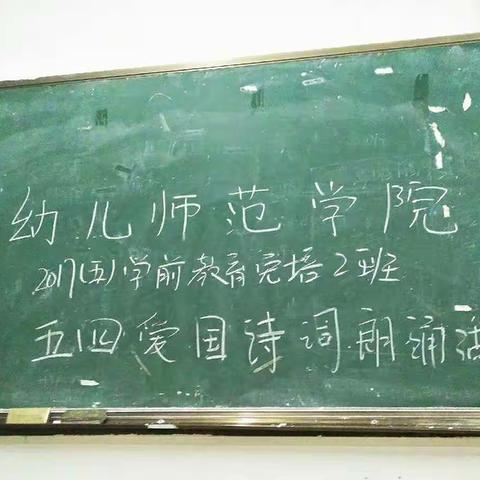 幼儿师范学院
2017(五)学前教育免培2班
五四爱国诗词朗诵活